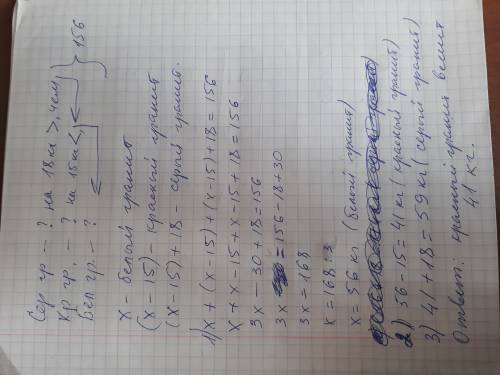 Сер гр – ? на 18 кг >, чем } 156
Кр гр. – ? на 15 кг <,
Бел гр. – ?
x – белый гранит
(x – 15) – красный гранит
(x – 15) + 18 – серый гранит.
1) x + (x – 15) + (x – 15) + 18 = 156
x + x – 15 + x – 15 + 18 = 156
3x – 30 + 18 = 156
3x = 156 – 18 + 30
3x = 168
x = 168 : 3
x = 56 кг (белый гранит)
2) 56 – 15 = 41 кг (красный гранит)
3) 41 + 18 = 59 кг (серый гранит)
Ответ: красный гранит весит
41 кг.